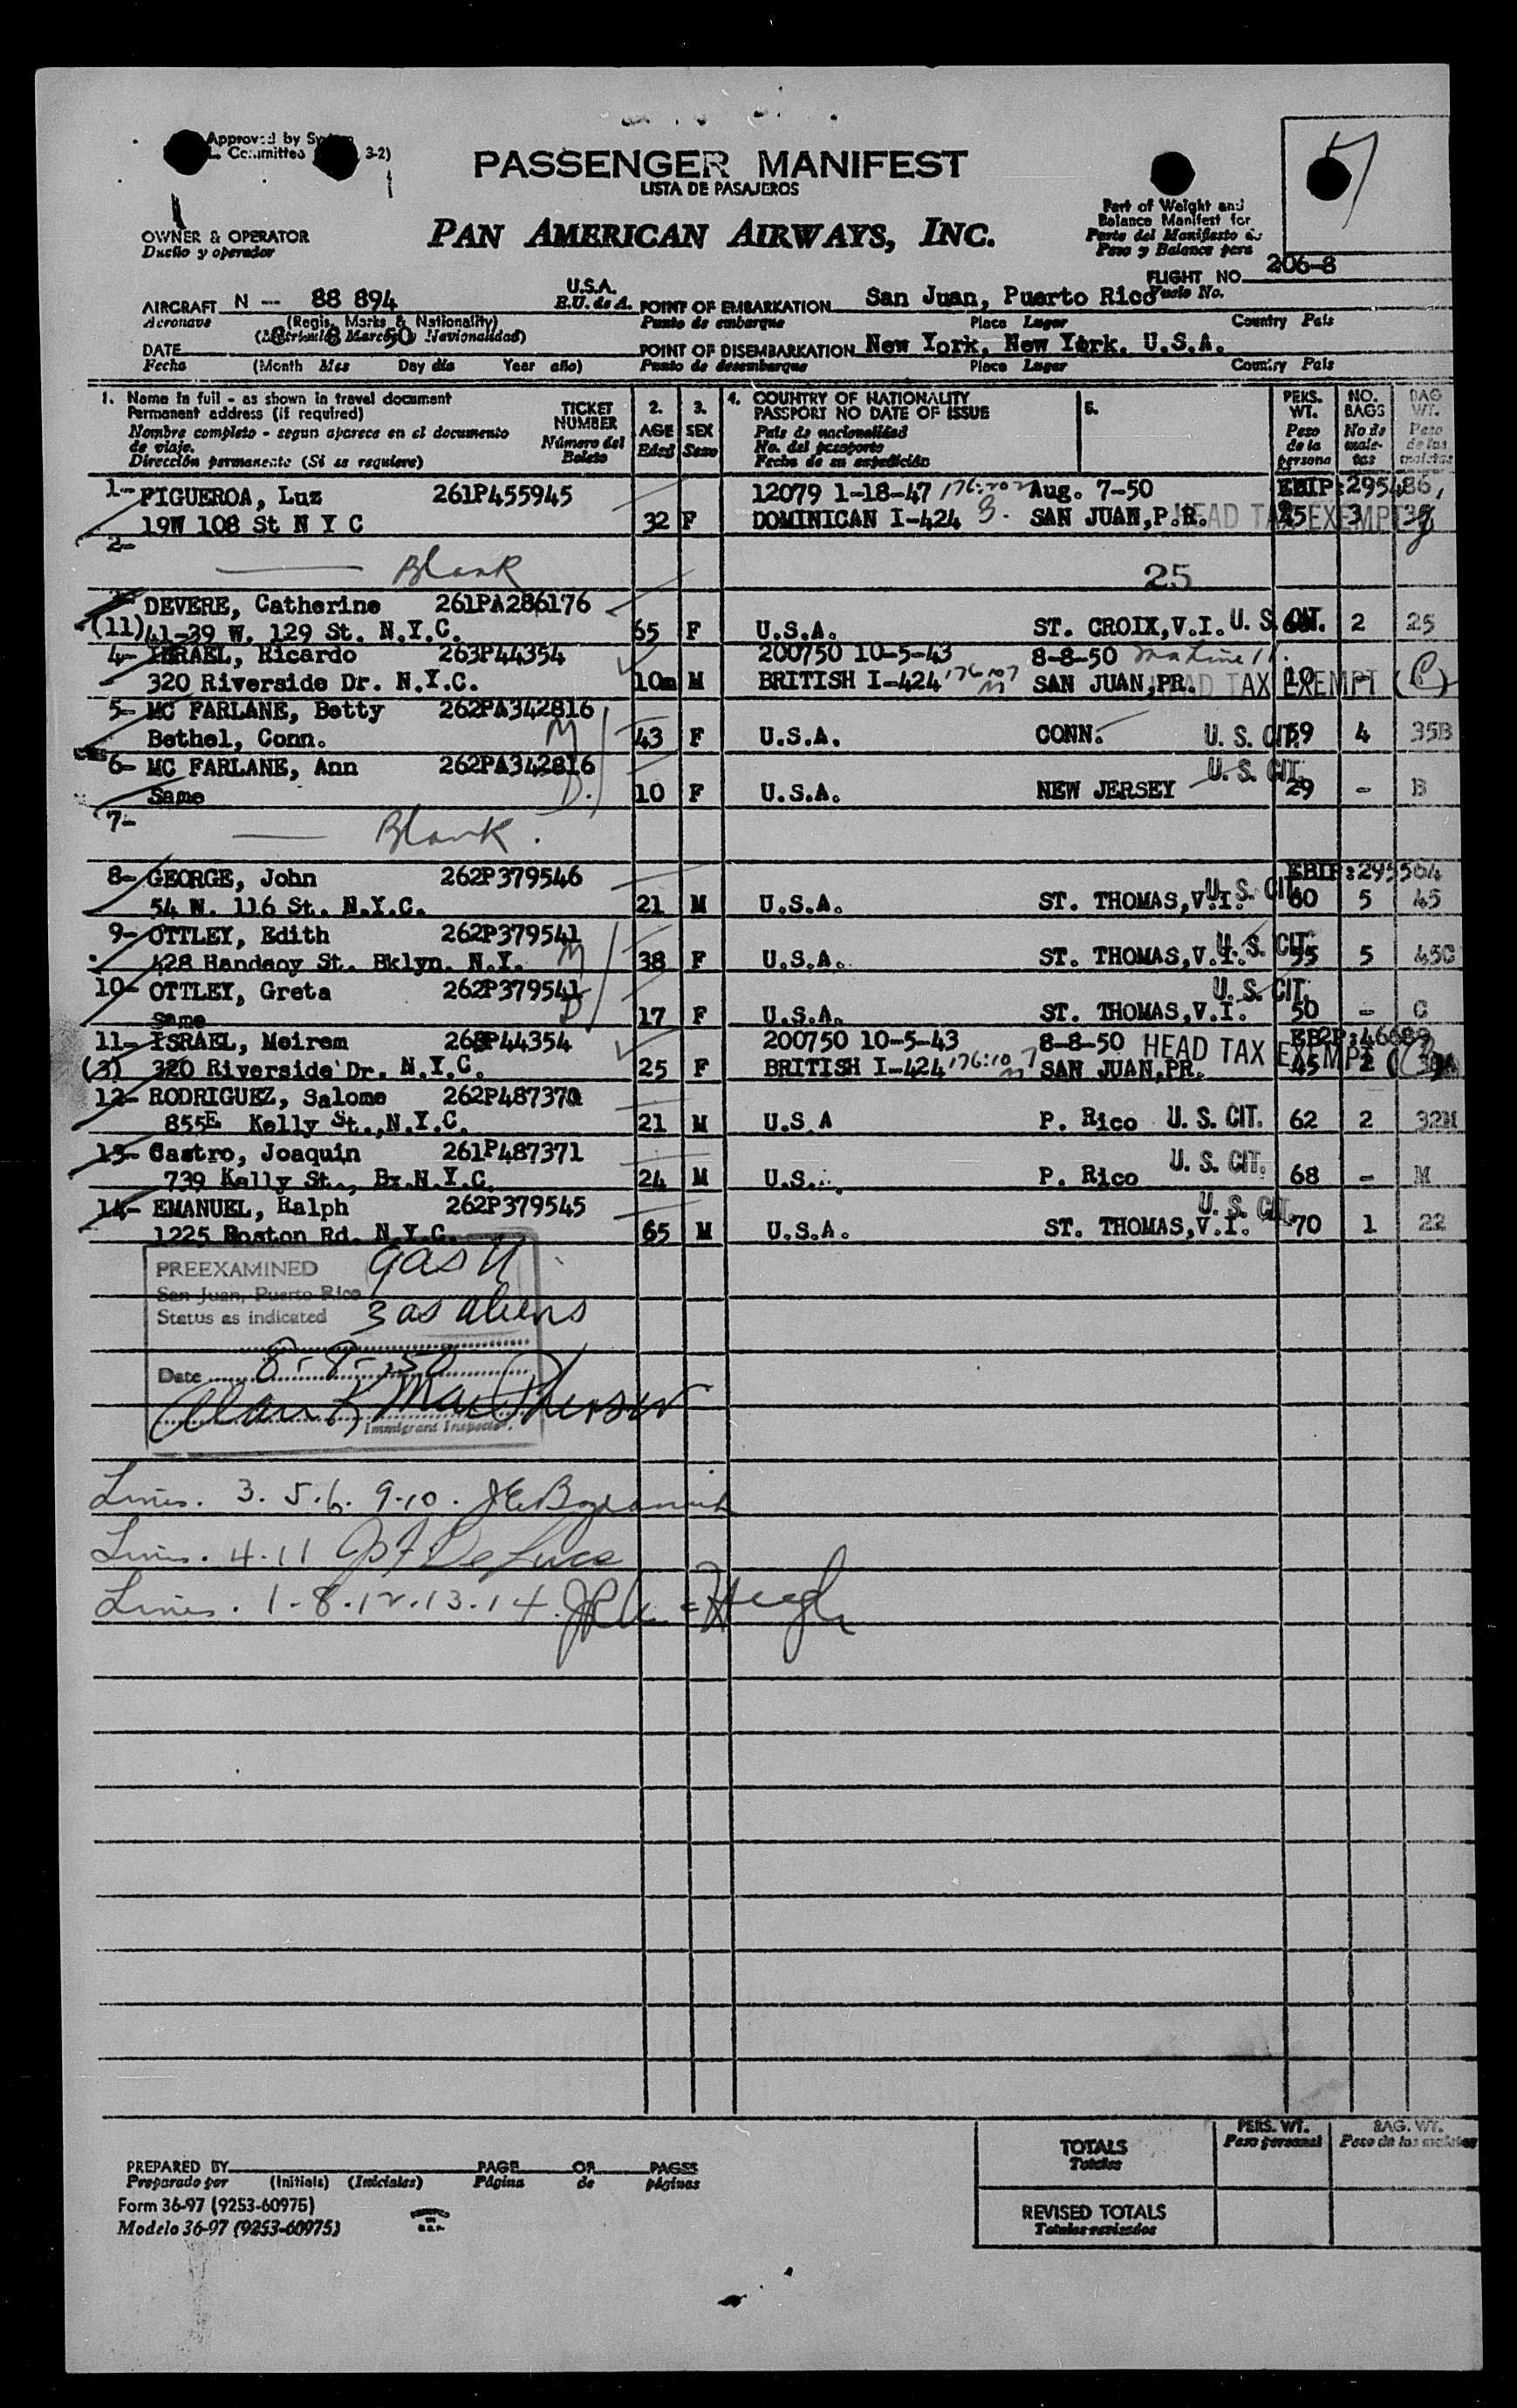 Approved by
Committee 3-2)
7
PASSENGER MANIFEST
LISTA DE PASAJEROS
PAN AMERICAN AIRWAYS, INC.
OWNER & OPERATOR
Dueño y operador
Part of Weight and
Balance Manifest for
Parte del Manifiesto de
Peso y Balance para
FLIGHT NO. 206-8
Vuelo No.
AIRCRAFT N - 88 894 U.S.A.
Aeronave (Regis. Marks & Nationality) E.U. de A.
(Matricula Marcas y Nacionalidad)
POINT OF EMBARKATION San Juan, Puerto Rico
Punto de embarque Place Lugar Country Pais
DATE 8 8 50
Fecha (Month Mes Day dia Year año)
POINT OF DISEMBARKATION New York, New York. U.S.A.
Punto de desembarque Place Lugar Country Pais
1. Name in full - as shown in travel document
Permanent address (if required)
Nombre completo - segun aparece en el documento
de viaje.
Dirección permanente (Si se requiere)
TICKET
NUMBER
Número del
Boleto
2.
AGE
Edad
3.
SEX
Sexo
4. COUNTRY OF NATIONALITY
PASSPORT NO DATE OF ISSUE
Pais de nacionalidad
No. del pasaporte
Fecha de su expedición
5.
PERS.
WT.
Peso
de la
persona
NO.
BAGS
No de
male-
tas
BAG
WT.
Peso
de las
maletas
1- FIGUEROA, Luz 261P455945 12079 1-18-47 Aug. 7-50 EBIP:295486,
19W 108 St N Y C 32 F DOMINICAN I-424 SAN JUAN,P.R. HEAD TAX EXEMPT 3
2- Blank 25
3- DEVERE, Catherine 261PA286176
(11) 41-39 W. 129 St. N.Y.C. 65 F U.S.A. ST. CROIX,V.I. U. S. CIT. 2 25
4- ISRAEL, Ricardo 263P44354 200750 10-5-43 8-8-50
320 Riverside Dr. N.Y.C. 10m M BRITISH I-424 SAN JUAN,PR. HEAD TAX EXEMPT 10 -
5- MC FARLANE, Betty 262PA342816
Bethel, Conn. M 43 F U.S.A. CONN. U. S. CIT. 59 4 35B
6- MC FARLANE, Ann 262PA342816
Same D. 10 F U.S.A. NEW JERSEY U. S. CIT. 29 - B
7- Blank.
8- GEORGE, John 262P379546 EBIP:295564
54 W. 116 St. N.Y.C. 21 M U.S.A. ST. THOMAS,V.I. U. S. CIT. 60 5 45
9- OTTLEY, Edith 262P379541
428 St. Bklyn. N.Y. M 38 F U.S.A. ST. THOMAS,V.I. U. S. CIT. 55 5 45C
10- OTTLEY, Greta 262P379541
Same D 17 F U.S.A. ST. THOMAS,V.I. U. S. CIT. 50 - C
11- ISRAEL, Meirem 263P44354 200750 10-5-43 8-8-50
(3) 320 Riverside Dr. N.Y.C. 25 F BRITISH I-424 SAN JUAN,PR. HEAD TAX EXEMPT 45 2
12- RODRIGUEZ, Salome 262P487370
855E Kelly St.,N.Y.C. 21 M U.S.A P. Rico U. S. CIT. 62 2 32M
13- Castro, Joaquin 261P487371
739 Kelly St., Bx.N.Y.C. 24 M U.S. P. Rico U. S. CIT. 68 - M
14- EMANUEL, Ralph 262P379545
1225 Boston Rd. N.Y.C. 65 M U.S.A. ST. THOMAS,V.I. U. S. CIT. 70 1 22
PREEXAMINED 9 as
San Juan, Puerto Rico
Status as indicated 3 as aliens
Date 8-8-50
Immigrant Inspector.
Lines. 3. 5. 6. 9-10.
Lines. 4-11
Lines. 1-8.12.13.14
TOTALS
Totales
PERS. WT.
Peso personal
BAG. WT.
Peso de las maletas
REVISED TOTALS
Totales revisados
PREPARED BY PAGE OF PAGES
Preparado por (Initials) (Iniciales) Página de páginas
Form 36-97 (9253-60975)
Modelo 36-97 (9253-60975)